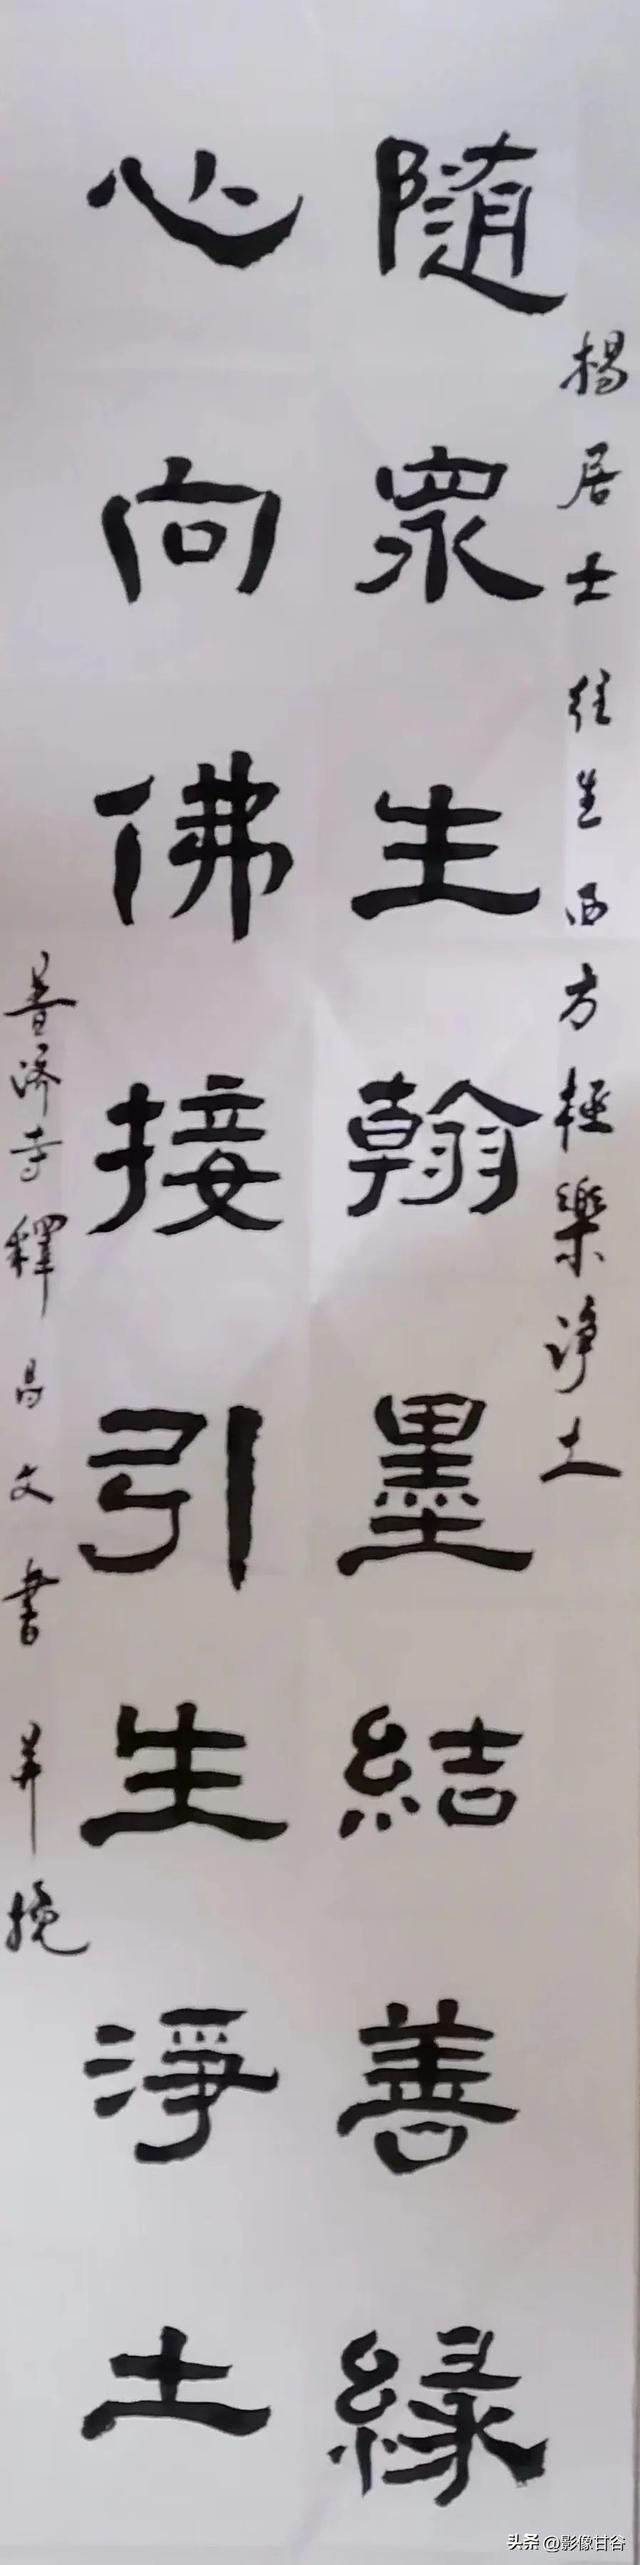 楊居士往生西方極樂淨土
隨眾生翰墨結善緣
心向佛接引生淨土
普濟寺釋昌文書并挽
头条 @影像甘谷